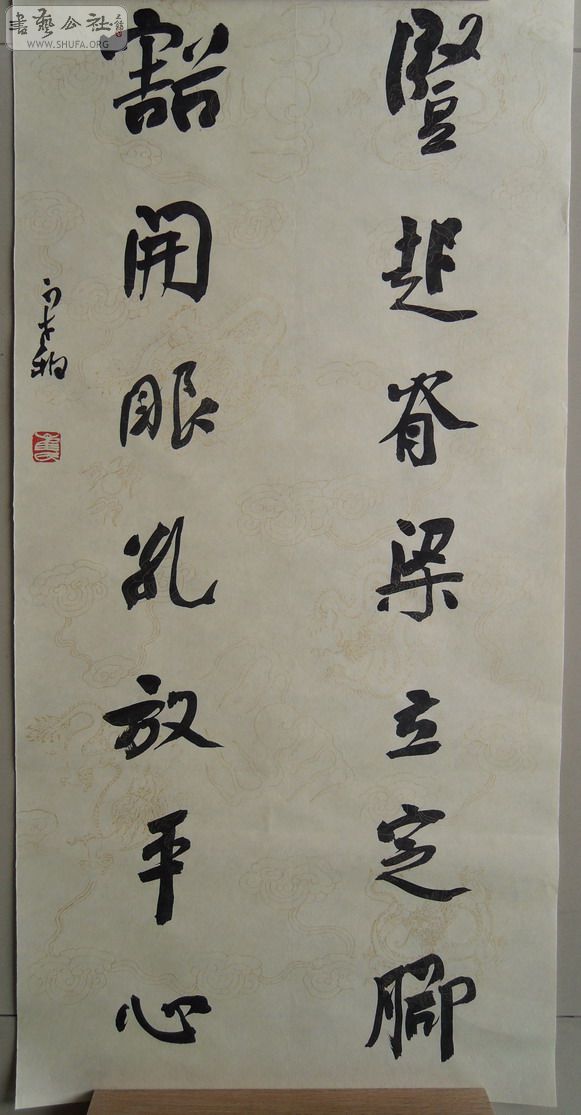 豎起脊梁立定腳
豁開眼孔放平心
書藝公社
www.SHUFA.ORG